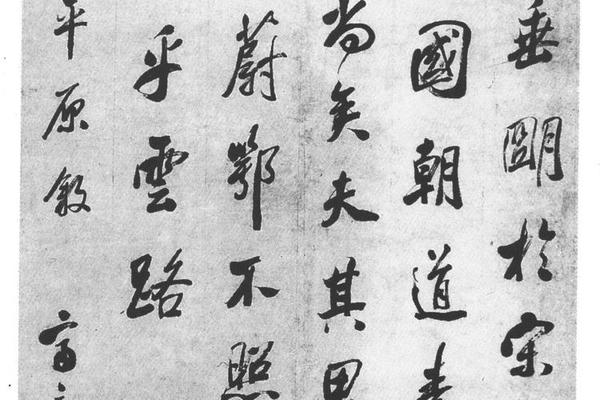 垂朙於宋
國朝道
尚矣夫其思
蔚鄂不照
乎雲路
平原敘